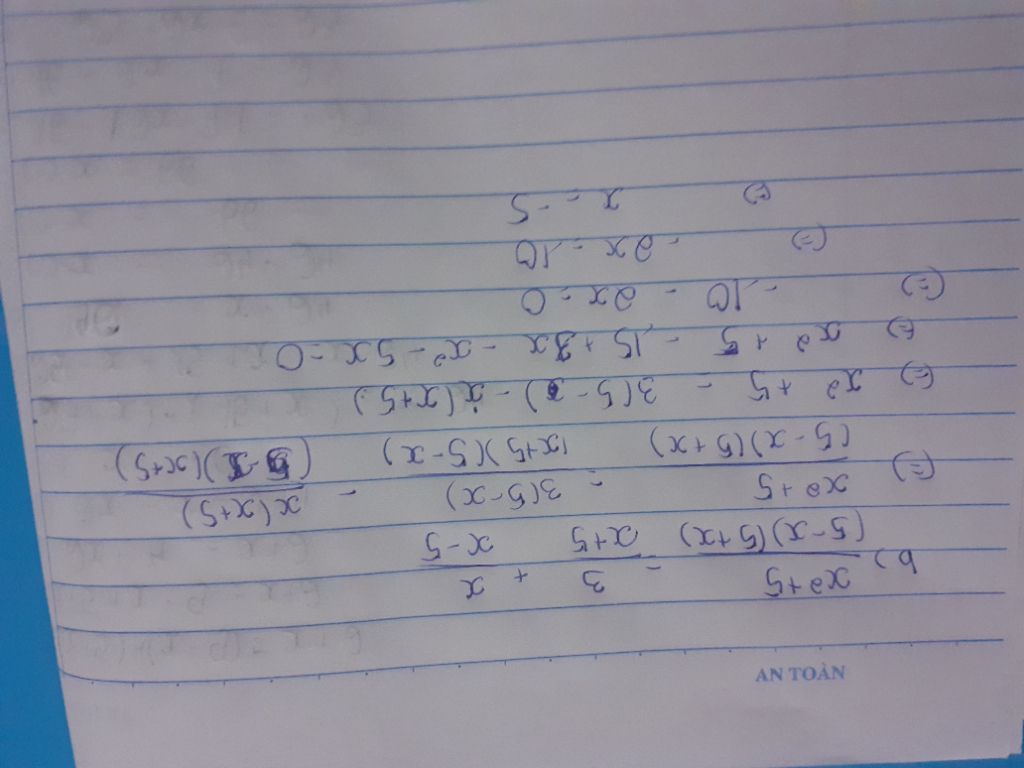 AN TOÀN
b) x²+5/(5-x)(5+x) = 3/x+5 + x/x-5
(=) x²+5/(5-x)(5+x) = 3(5-x)/(x+5)(5-x) - x(x+5)/(5-x)(x+5)
(=) x²+5 - 3(5-x) - x(x+5)
(=) x²+5 - 15+3x - x²-5x=0
(=) -10 - 2x=0
(=) -2x=10
(=) x=-5